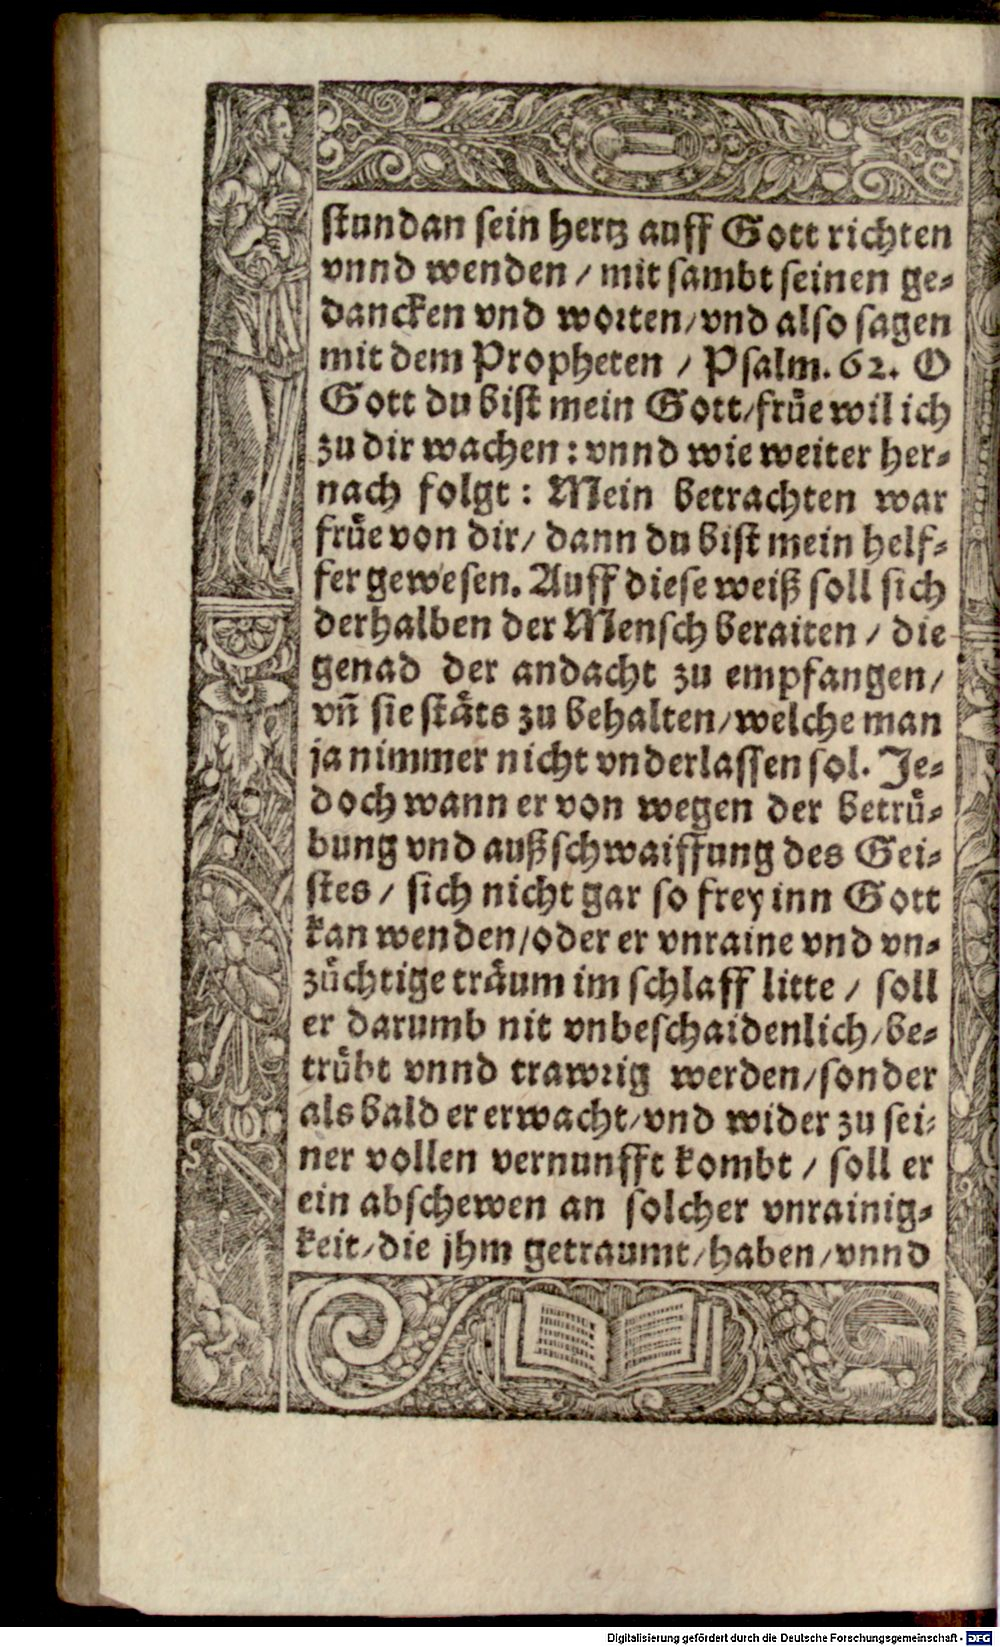 stundan sein hertz auff Gott richten
vnnd wenden / mit sambt seinen ge-
dancken vnd worten/vnd also sagen
mit dem Propheten / Psalm. 62. O
Gott du bist mein Gott/ frůe wil ich
zu dir wachen: vnnd wie weiter her-
nach folgt: Mein betrachten war
frůe von dir/ dann du bist mein helf-
fer gewesen. Auff diese weiß soll sich
derhalben der Mensch beraiten / die
genad der andacht zu empfangen/
vñ sie ståts zu behalten/welche man
ja nimmer nicht vnderlassen sol. Je-
doch wann er von wegen der betrů-
bung vnd außschwaiffung des Gei-
stes / sich nicht gar so frey inn Gott
kan wenden/oder er vnraine vnd vn-
zůchtige tråum im schlaff litte / soll
er darumb nit vnbeschaidenlich/be-
trůbt vnnd trawrig werden/sonder
als bald er erwacht/vnd wider zu sei-
ner vollen vernunfft kombt / soll er
ein abschewen an solcher vnrainig-
keit/die jhm getraumt/haben/vnnd
Digitalisierung gefördert durch die Deutsche Forschungsgemeinschaft - DFG